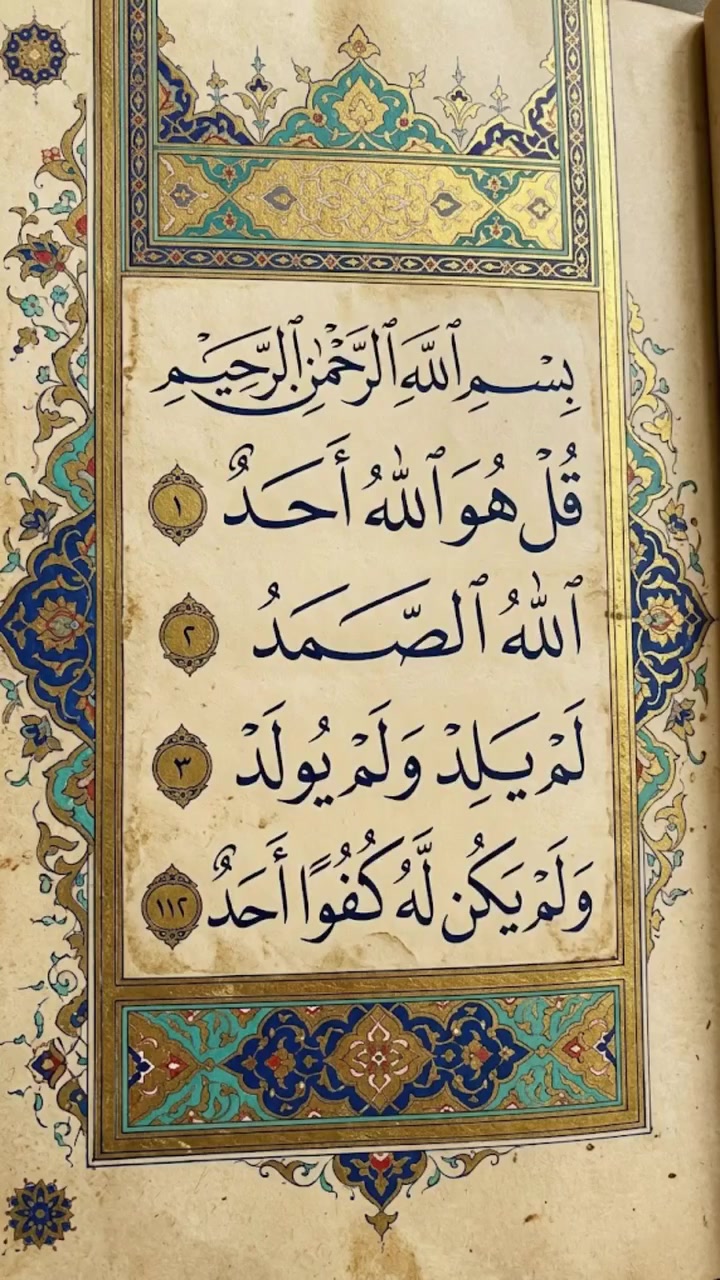 بِسْمِ ٱللَّهِ ٱلرَّحْمَٰنِ ٱلرَّحِيمِ
قُلْ هُوَ ٱللَّٰهُ أَحَدٌ ١
ٱللَّٰهُ ٱلصَّمَدُ ٢
لَمْ يَلِدْ وَلَمْ يُولَدْ ٣
وَلَمْ يَكُن لَّهُ كُفُوًا أَحَدٌ ١١٢